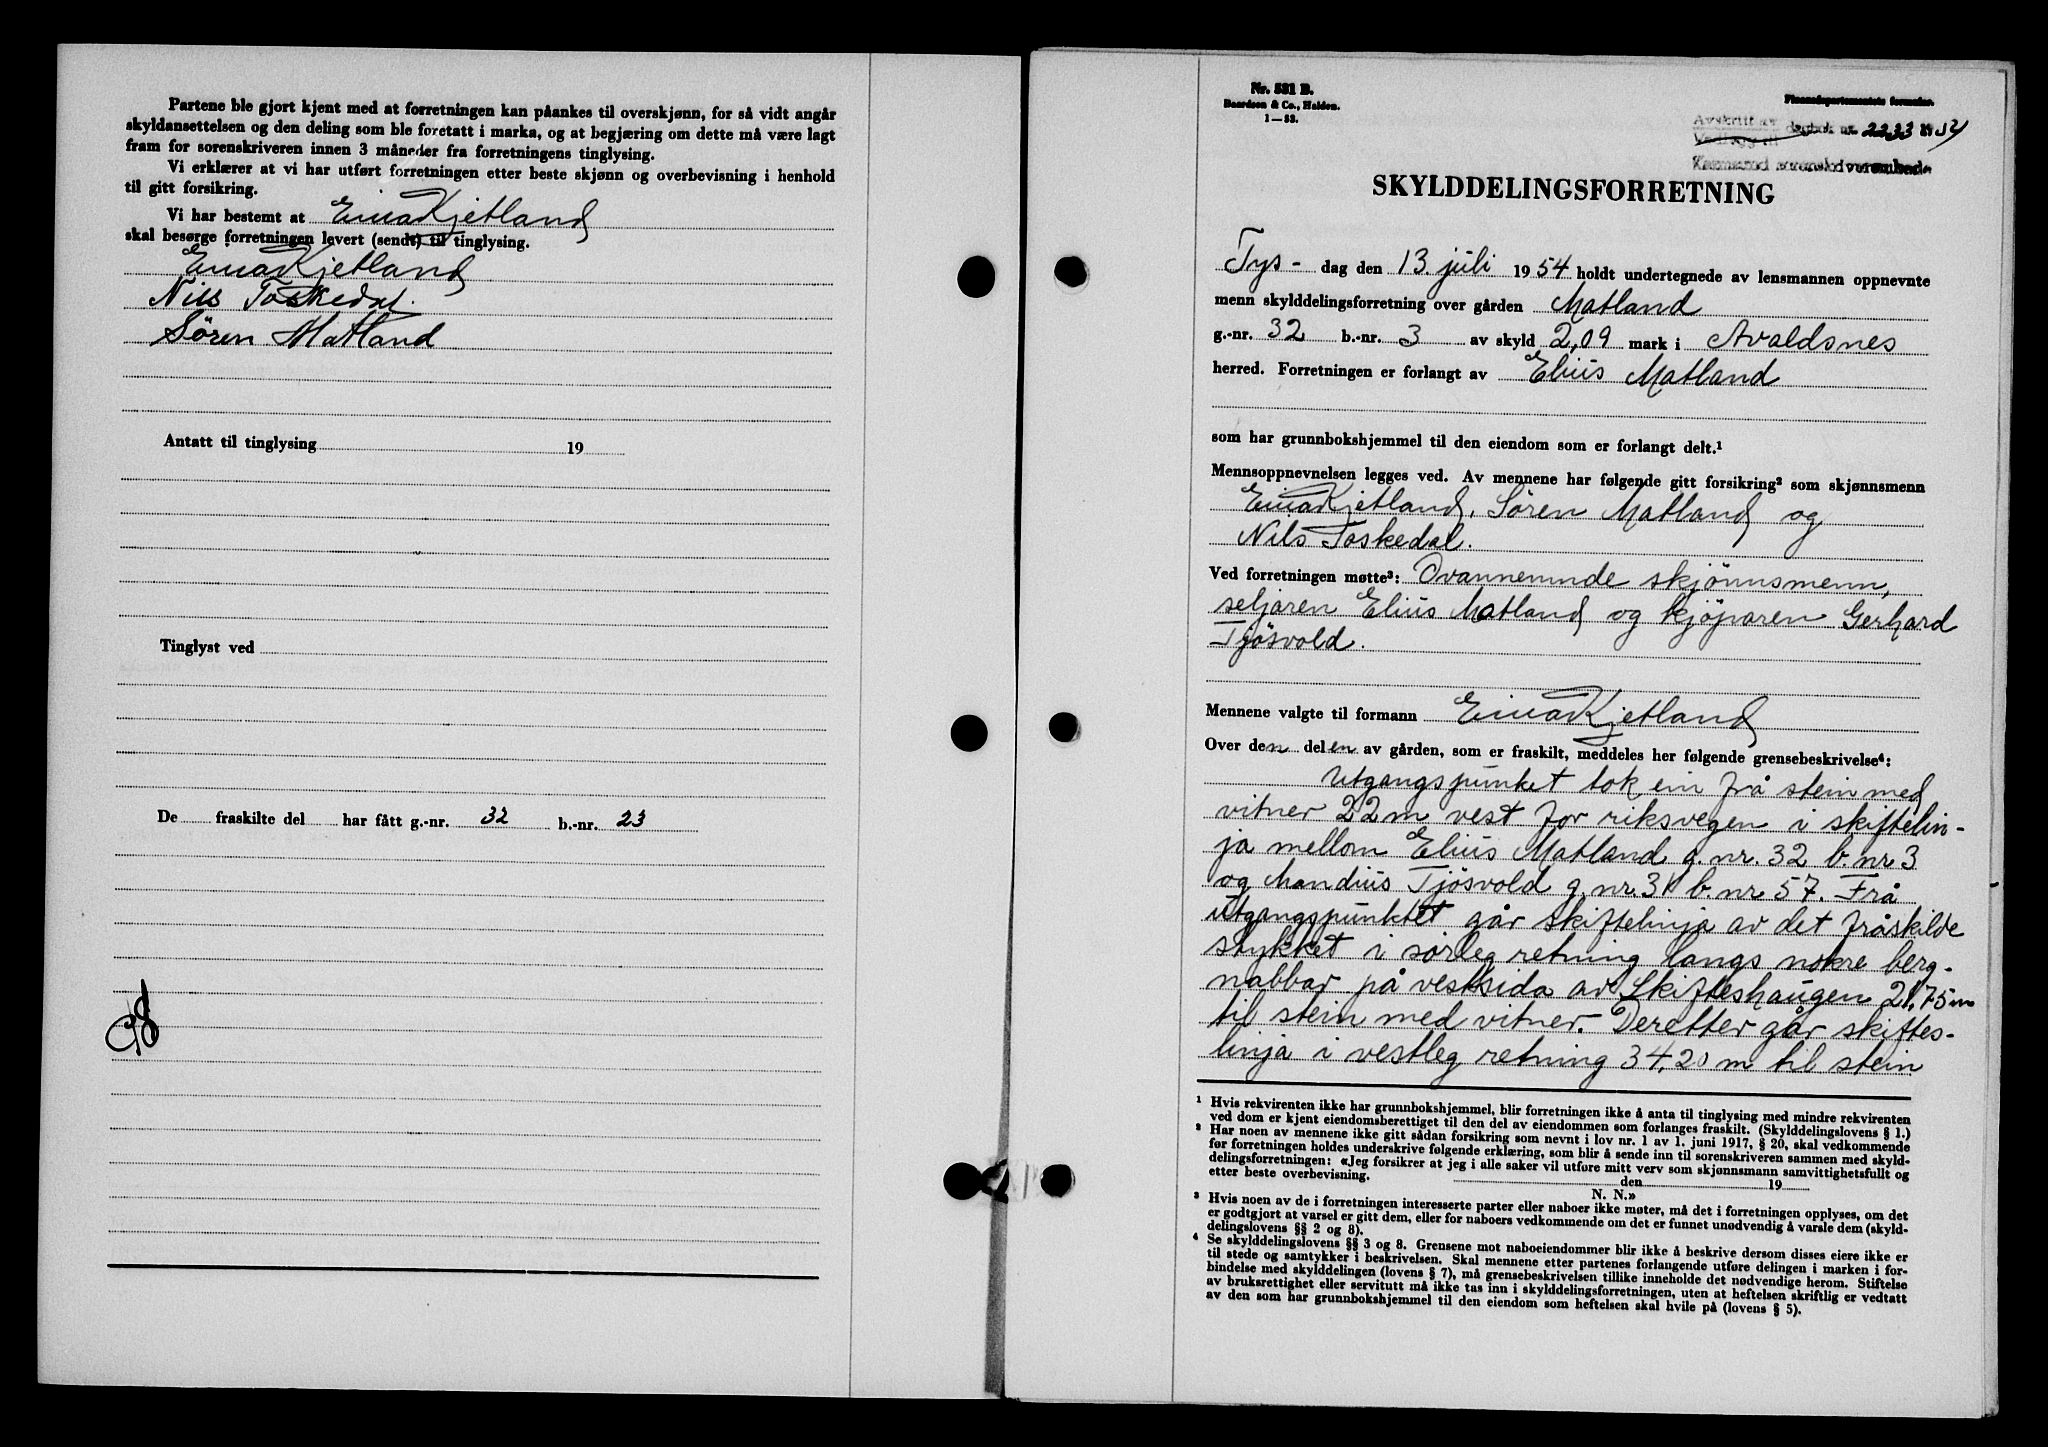 Partene ble gjort kjent med at forretningen kan påankes til overskjønn, for så vidt angår
skyldansettelsen og den deling som ble foretatt i marka, og at begjæring om dette må være lagt
fram for sorenskriveren innen 3 måneder fra forretningens tinglysing.
Vi erklærer at vi har utført forretningen etter beste skjønn og overbevisning i henhold
til gitt forsikring.
Vi har bestemt at Einar Kjetland
skal besørge forretningen levert (sendt) til tinglysing.
Einar Kjetland
Nils Toskedal.
Søren Matland
Antatt til tinglysing 19
Tinglyst ved
De fraskilte del har fått g.-nr. 32 b.-nr. 23
Nr. 531 B.
Baardsen & Co., Halden.
1—53.
Finansdepartementets formular.
Avskrift av dagbok nr. 2233 1954
Vedlegg til
Karmsund sorenskriverembede
SKYLDDELINGSFORRETNING
Tys- dag den 13 juli 1954 holdt undertegnede av lensmannen oppnevnte
menn skylddelingsforretning over gården Matland
g.-nr. 32 b.-nr. 3 av skyld 2,09 mark i Avaldsnes
herred. Forretningen er forlangt av Elius Matland
som har grunnbokshjemmel til den eiendom som er forlangt delt.¹
Mennsoppnevnelsen legges ved. Av mennene har følgende gitt forsikring² som skjønnsmenn
Einar Kjetland, Søren Matland og
Nils Toskedal.
Ved forretningen møtte³: Ovannemnde skjönnsmenn,
seljaren Elius Matland og kjöparen Gerhard
Tjösvold.
Mennene valgte til formann Einar Kjetland
Over den delen av gården, som er fraskilt, meddeles her følgende grensebeskrivelse⁴:
Utgangspunket tok ein frå stein med
vitner 22 m vest for riksvegen i skiftelin-
ja mellom Elius Matland g. nr. 32 b. nr 3
og Mandius Tjösvold g. nr. 31 b. nr. 57. Frå
utgangspunktet går skiftelinja av det fråskilde
stykket i sörleg retning langs nokre berg-
nabbar på vestsida av Skifteshaugen 21,75 m
til stein med vitner. Deretter går skiftes-
linja i vestleg retning 34,20 m til stein
¹ Hvis rekvirenten ikke har grunnbokshjemmel, blir forretningen ikke å anta til tinglysing med mindre rekvirenten
ved dom er kjent eiendomsberettiget til den del av eiendommen som forlanges fraskilt. (Skylddelingslovens § 1.)
² Har noen av mennene ikke gitt sådan forsikring som nevnt i lov nr. 1 av 1. juni 1917, § 20, skal vedkommende
før forretningen holdes underskrive følgende erklæring, som blir å sende inn til sorenskriveren sammen med skyld-
delingsforretningen: «Jeg forsikrer at jeg i alle saker vil utføre mitt verv som skjønnsmann samvittighetsfullt og
etter beste overbevisning. den 19
N. N.»
³ Hvis noen av de i forretningen interesserte parter eller naboer ikke møter, må det i forretningen opplyses, om det
er godtgjort at varsel er gitt dem, eller for naboers vedkommende om det er funnet unødvendig å varsle dem (skyld-
delingslovens §§ 2 og 8).
⁴ Se skylddelingslovens §§ 3 og 8. Grensene mot naboeiendommer blir ikke å beskrive dersom disses eiere ikke er
til stede og samtykker i beskrivelsen. Skal mennene etter partenes forlangende utføre delingen i marken i for-
bindelse med skylddelingen (lovens § 7), må grensebeskrivelsen tillike inneholde det nødvendige herom. Stiftelse
av bruksrettighet eller servitutt må ikke tas inn i skylddelingsforretningen, uten at heftelsen skriftlig er vedtatt
av den som har grunnbokshjemmel til den eiendom som heftelsen skal hvile på (lovens § 5).